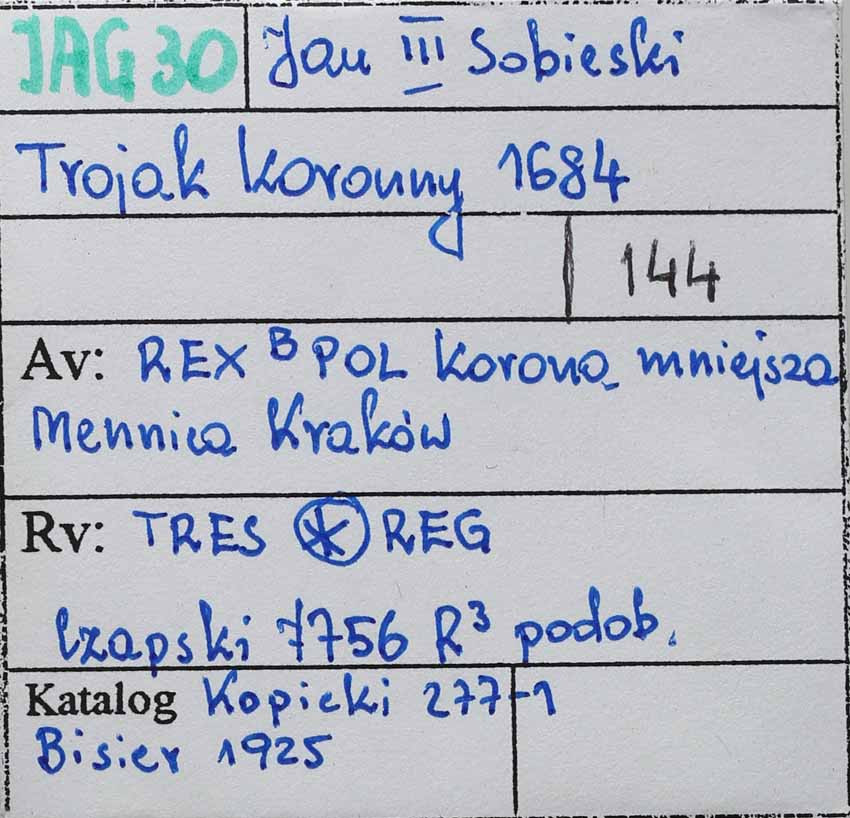 JAG 30 Jan III Sobieski
Trojak koronny 1684
144
Av: REX B POL korona mniejsza
Mennica Kraków
Rv: TRES * REG
Czapski 7756 R3 podob.
Katalog Kopicki 277-1
Bisier 1925